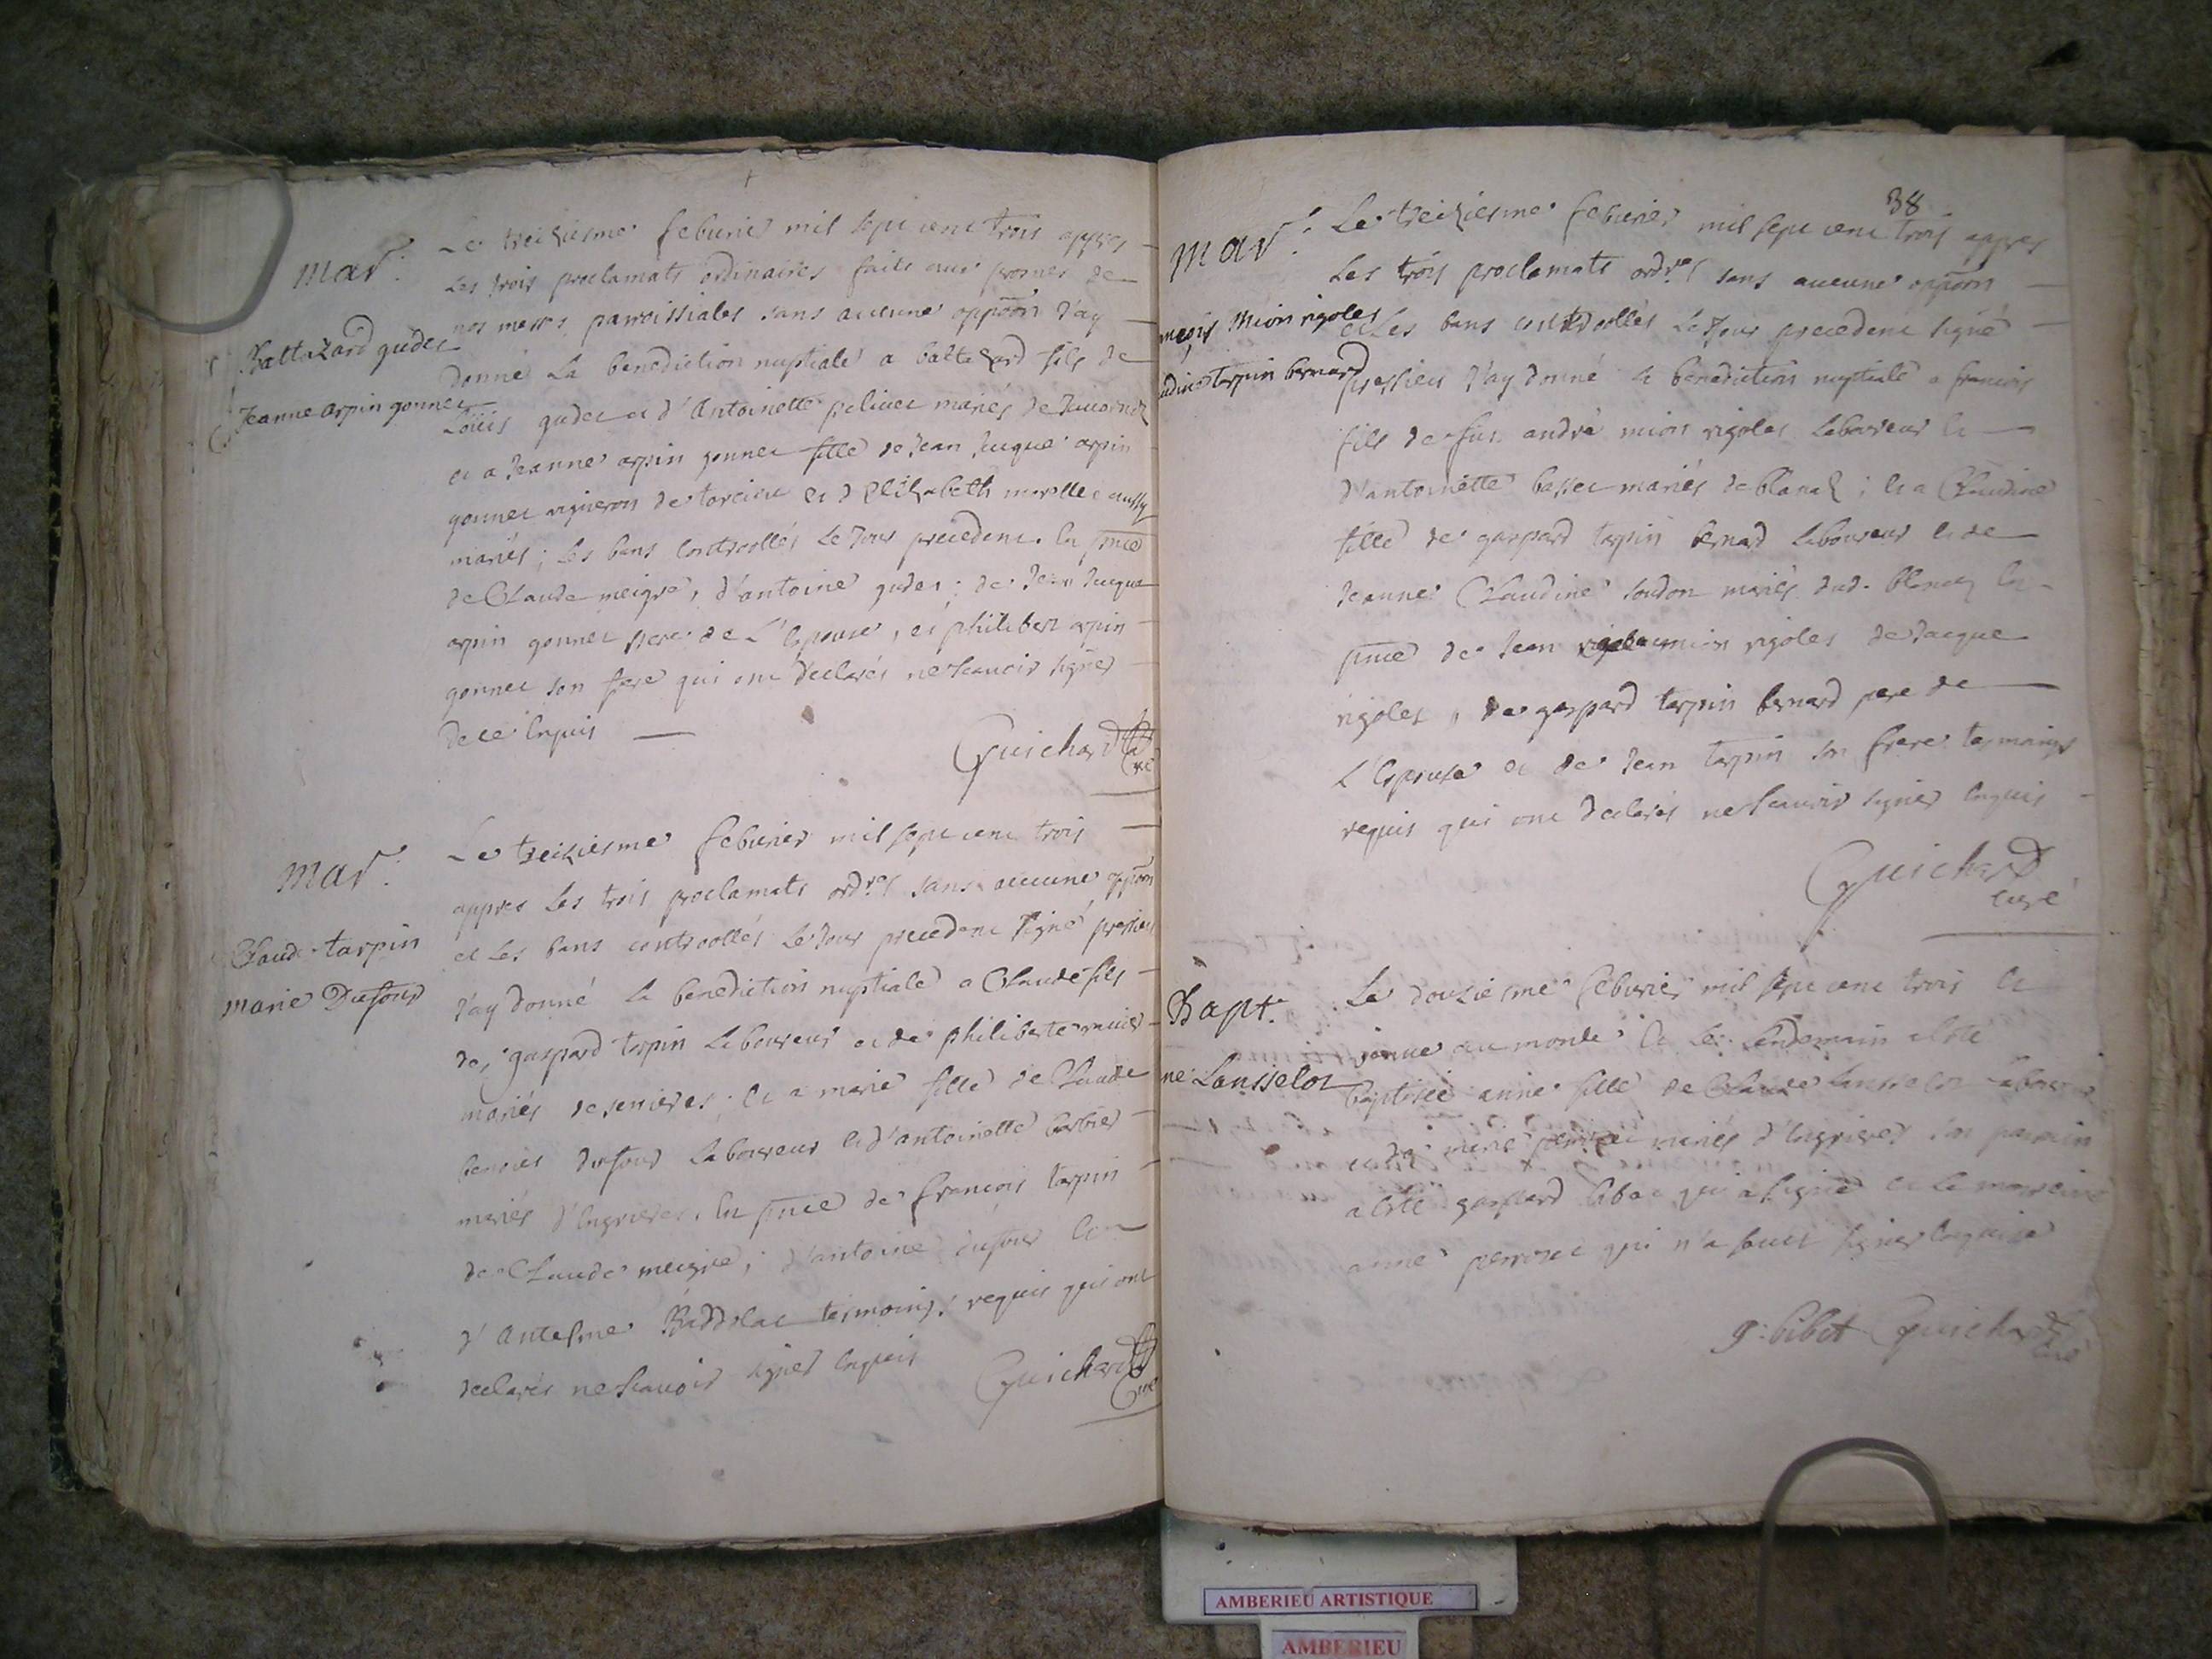 mar.
Balthazard gudet
Jeanne arpin gonnet
Le treiziesme feburier mil sept cent trois appres
Les trois proclamats ordinaires faits aux prosnes de
nos messes parroissiales sans aucune oppoon J'ay
donné La benediction nuptiale a baltezard fils de
Loüis gudet et d'Antoinette mariés de
et a Jeanne arpin gonnet fille de Jean Jacque arpin
gonnet vigneron de torcieu et d'Elizabeth aussy
mariés; Les bans controollés Le Jour precedent. En pnce
de Claude meigre, d'antoine gudet; de Jean Jacque
arpin gonnet pere de L'Espouse, et philibert arpin
gonnet son frere qui ont declarés ne scauoir signer
de ce Enquis
Guichard Curé
mar.
Claude tarpin
marie Dufour
Le treiziesme feburier mil sept cent trois
appres Les trois proclamats ordres sans aucune oppoon
et Les bans controollés Le Jour precedent signé pressieu
J'ay donné La benediction nuptiale a Claude fils
de gaspard tarpin Laboureur et de philiberte
mariés de; Et a marie fille de Claude
benoist dufour Laboureur et d'antoinette barbier
mariés d'Ingrieres. En pnce de francois tarpin
de Claude meigre; d'antoine dufour Et
d'Antelme tesmoings requis qui ont
declarés ne scauoir signer Enquis
Guichard Curé
38
mar.
mion rigolet
tarpin bernard
Le treiziesme feburier mil sept cent trois appres
Les trois proclamats ordres sans aucune oppoon
et Les bans controollés Le Jour precedent signé
pressieu J'ay donné La benediction nuptiale a francois
fils de feu andré mion rigolet Laboureur Et
d'antoinette basset mariés de blanaz; Et a Claudine
fille de gaspard tarpin bernard Laboureur Et de
Jeanne Claudine mariés dud. blanaz En
pnce de Jean mion rigolet de Jacque
rigolet, de gaspard tarpin bernard pere de
L'Espouse et de Jean tarpin son frere tesmoings
requis qui ont declarés ne scauoir signer Enquis
Guichard
curé
Bapt.
ne Lansselot
Le douziesme feburier mil sept cent trois Et
venue au monde Et Le Lendemain a Esté
baptisée anne fille de Claude Lansselot
et de marie mariés d'Ingrieres son parrain
a Esté gaspard bibet qui a signé et La marraine
anne perrozet qui n'a sceu signer Enquise
g. bibet Guichard curé
AMBERIEU ARTISTIQUE
AMBERIEU